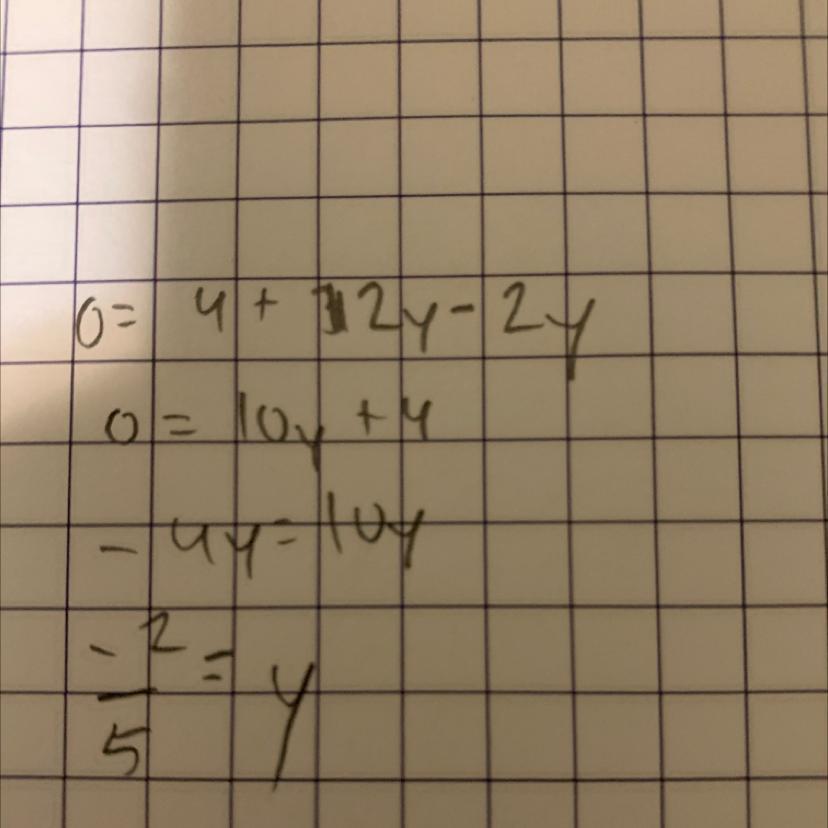 0 = 4 + 12y - 2y
0 = 10y + 4
- 4y = 10y
-2/5 = y